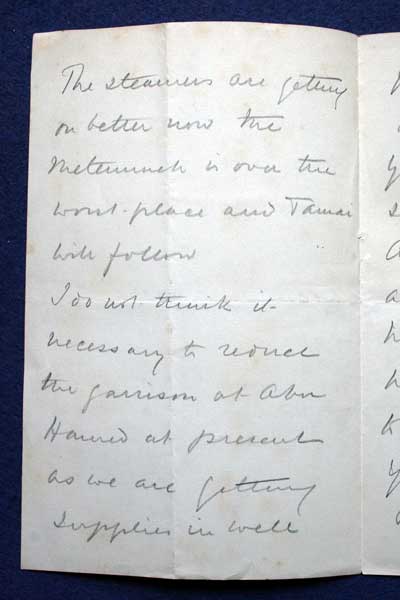 The steamers are getting
on better now the
Metemmeh is over the
worst place and Tamai
will follow
I do not think it
necessary to reduce
the garrison at Abu
Hamed at present
as we are getting
supplies in well